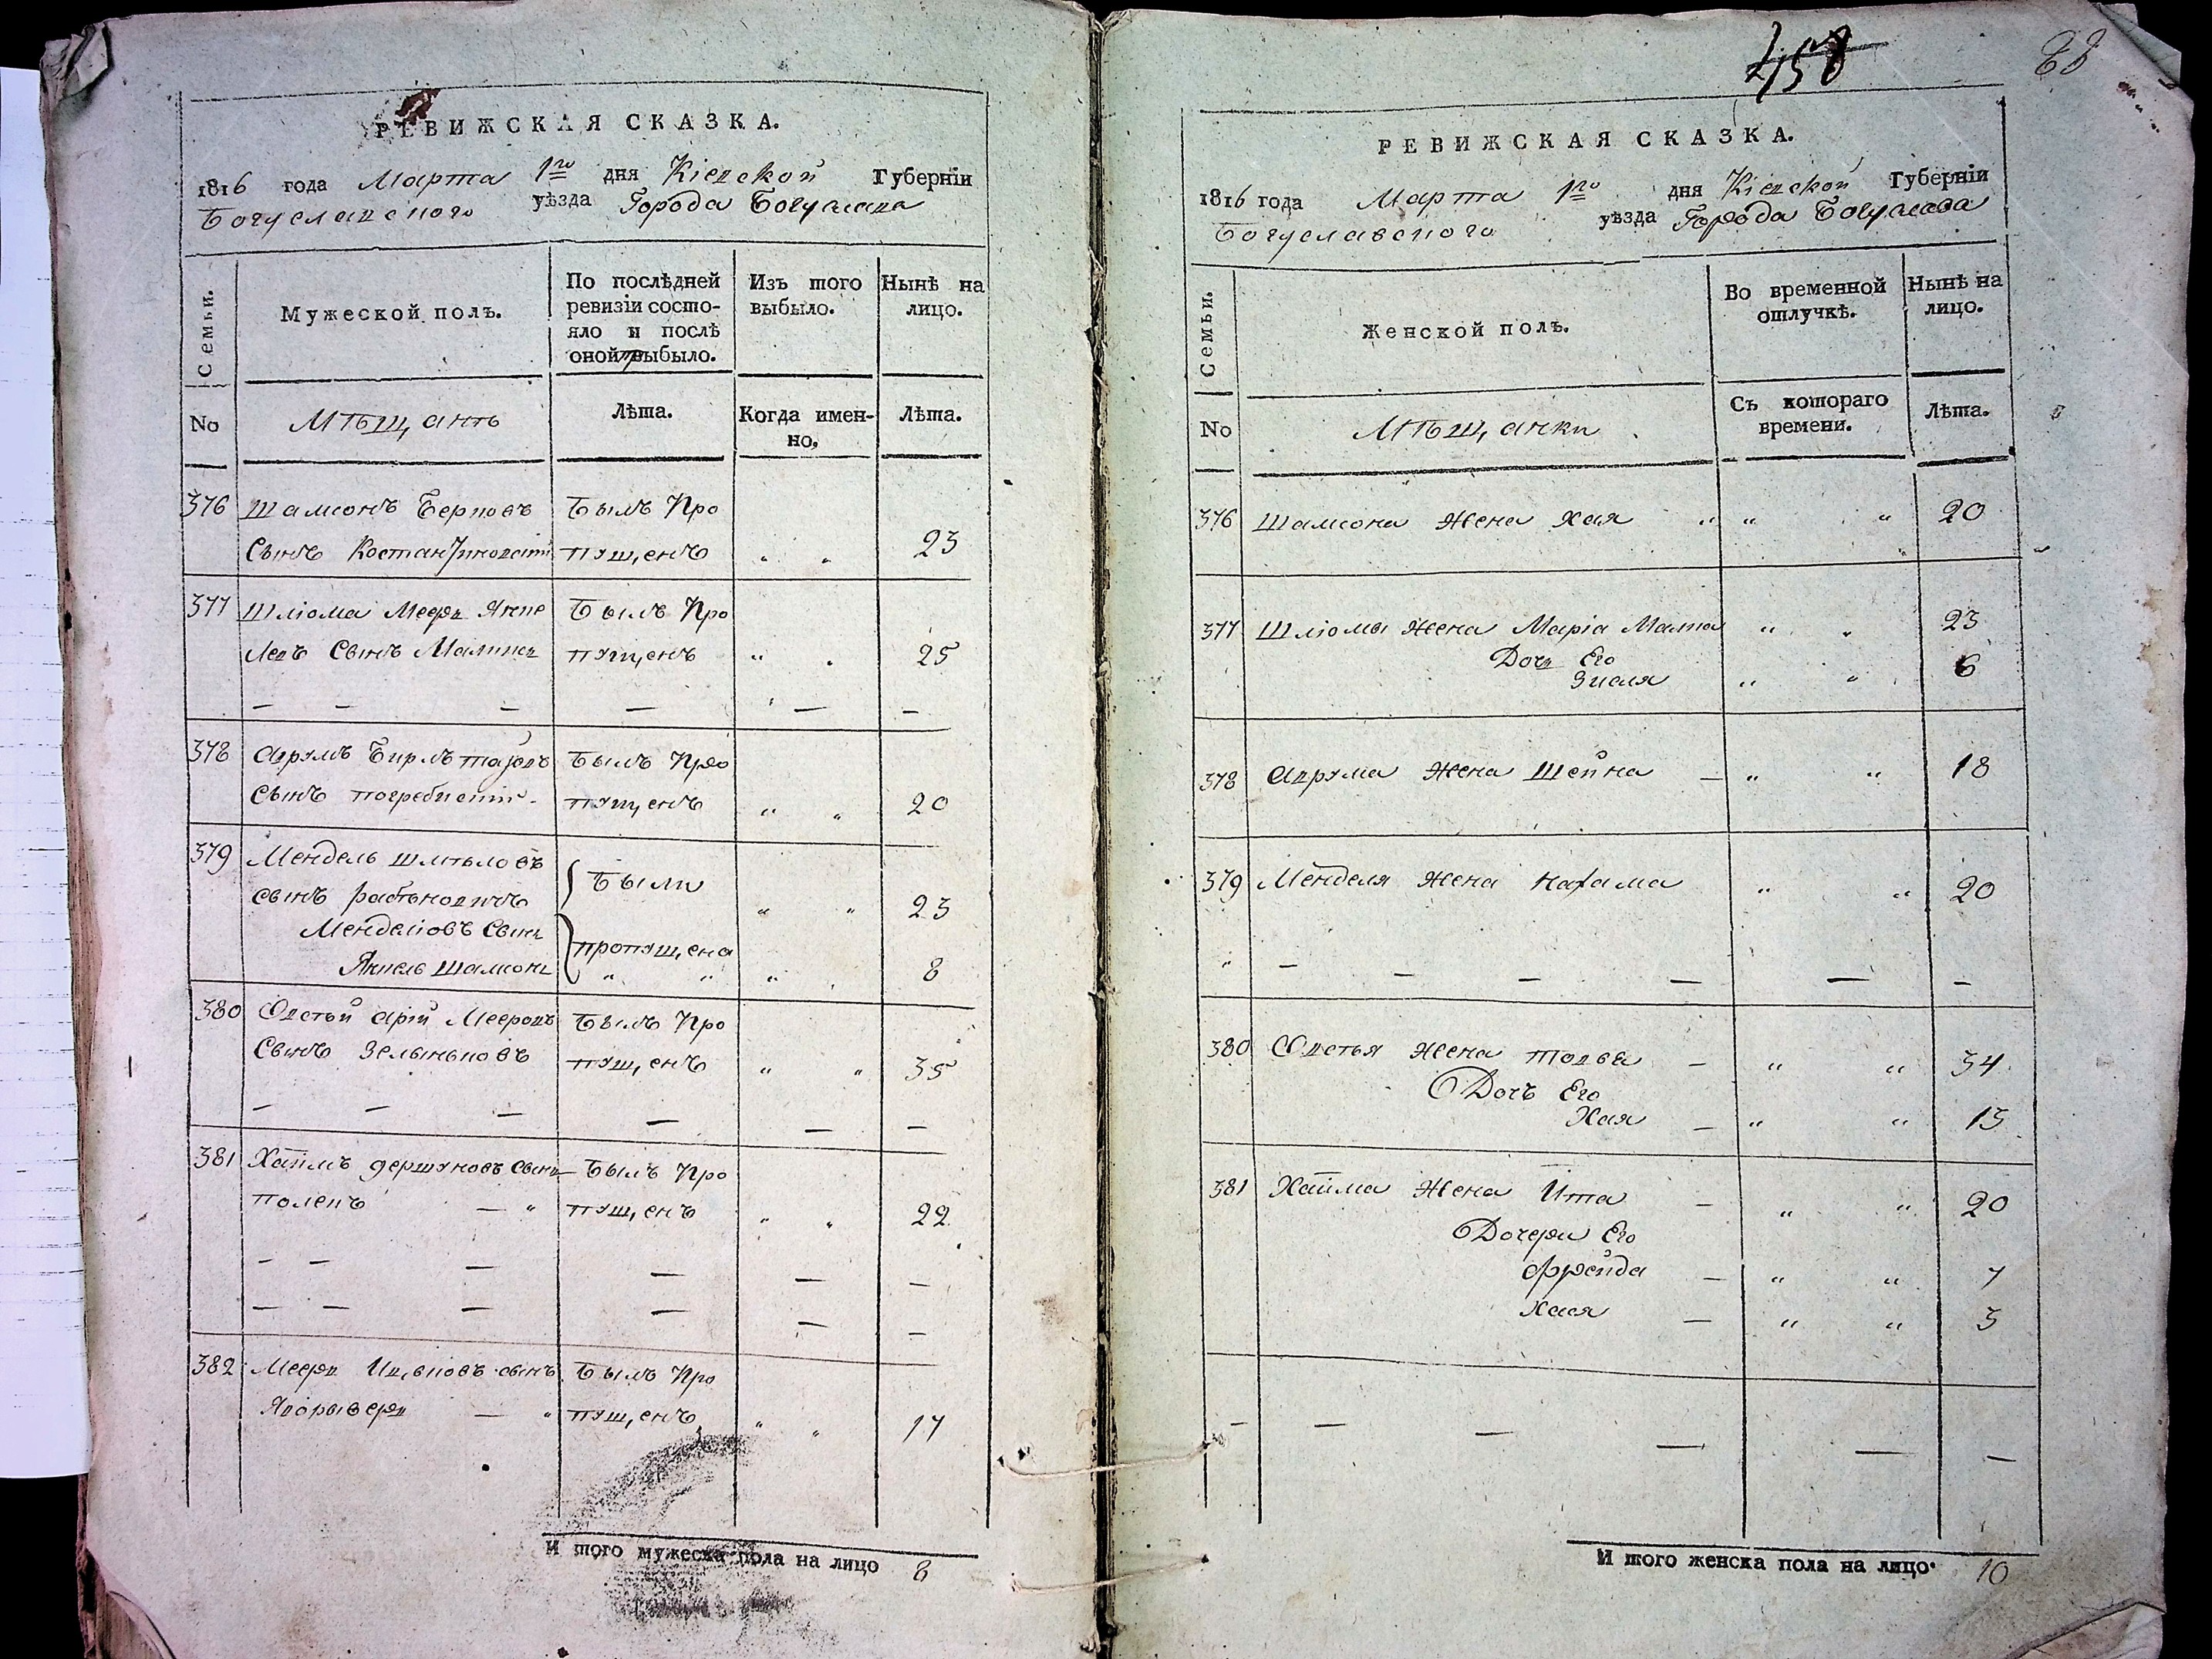 РЕВИЖСКАЯ СКАЗКА.
1816 года Марта 1го дня Кіевской Губерніи
Богуславского уѣзда Города Богуслава
Семьи.
Мужеской полъ.
По послѣдней ревизіи состо-
яло и послѣ
оной прибыло.
Изъ того
выбыло.
Нынѣ на
лицо.
No
Мѣщанъ
Лѣта.
Когда имен-
но,
Лѣта.
376 Шамсонъ Берковъ Былъ Про
Сынъ пущенъ „ „ 23
377 Шліома Мееръ Янке Былъ Про
левъ Сынъ пущенъ „ „ 25
— — — — „ — —
378 Былъ Про
Сынъ пущенъ „ „ 20
379 Мендель Шмѣловъ Были
сынъ „ „ 23
Менделіовъ Сынъ пропущена
Янкель Шамсонъ „ „ „ „ 8
380 Овсѣй Арій Мееровъ Былъ Про
Сынъ пущенъ „ „ 35
— — — — — —
381 Хаимъ сынъ — Былъ Про
— „ пущенъ „ „ 22
— — — — — —
— — — — — —
382 Мееръ Ицковъ сынъ Былъ Про
— „ пущенъ „ „ 17
И того мужеска пола на лицо 8
458
88
РЕВИЖСКАЯ СКАЗКА.
1816 года Марта 1го дня Кіевской Губерніи
Богуславского уѣзда Города Богуслава
Семьи.
Женской полъ.
Во временной
отлучкѣ.
Нынѣ на
лицо.
No
Мѣщанки
Съ котораго
времени.
Лѣта.
376 Шамсона Жена Хая „ „ „ 20
377 Шліомы Жена Маріа Малка „ „ 23
Дочь Его
Зисля „ „ 6
378 Аврума Жена Шейна — „ „ 18
379 Менделя Жена Нахама „ „ 20
„ — — — — — —
380 Овсѣя Жена Товба — „ „ 34
Дочъ Его
Хая — „ „ 13
381 Хаима Жена Ита — „ „ 20
Дочери Его
Фрейда — „ „ 7
Хася — „ „ 3
— — — — — —
И того женска пола на лицо 10